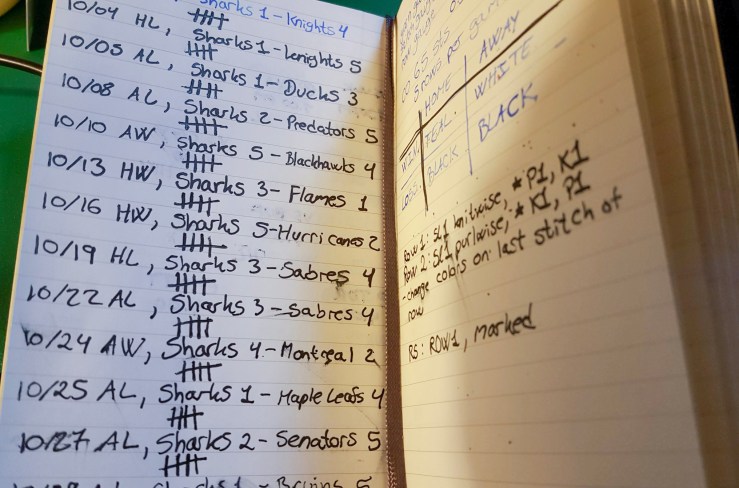 Sharks 1 - Knights 4
10/04 HL, Sharks 1 - Knights 5
10/05 AL, Sharks 1 - Ducks 3
10/08 AL, Sharks 2 - Predators 5
10/10 AW, Sharks 5 - Blackhawks 4
10/13 HW, Sharks 3 - Flames 1
10/16 HW, Sharks 5 - Hurricanes 2
10/19 HL, Sharks 3 - Sabres 4
10/22 AL, Sharks 3 - Sabres 4
10/24 AW, Sharks 4 - Montreal 2
10/25 AL, Sharks 1 - Maple Leafs 4
10/27 AL, Sharks 2 - Senators 5
AL, Sharks 1 - Bruins 5
CO 65 sts
5 rows per game
HOME AWAY
WIN TEAL WHITE
LOSS BLACK BLACK
Row 1: SL1 knitwise, * P1, K1
Row 2: SL1 purlwise, * K1, P1
- change colors on last stitch of
row
RS: ROW1, marked